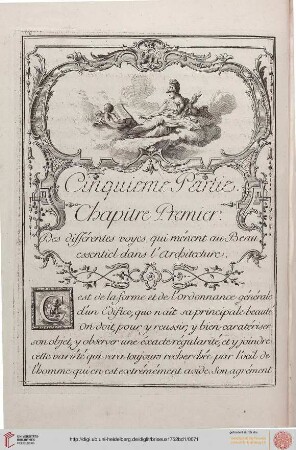 Cinquieme Partie.
Chapitre Premier.
Des différentes voyes qui mènent au Beau
essentiel dans l'Architecture.
C'est de la forme et de l'ordonnance générale
d'un Edifice, que naît sa principale beauté
On doit, pour y reussir, y bien caractériser
son objet, y observer une exacte régularité, et y joindre
cette variété qui sera toujours recherchée par l'oeil de
l'homme qui en est extrémement avide. Son agrément
UNIVERSITÄTS-
BIBLIOTHEK
HEIDELBERG
http://digi.ub.uni-heidelberg.de/diglit/briseux1752bd1/0071